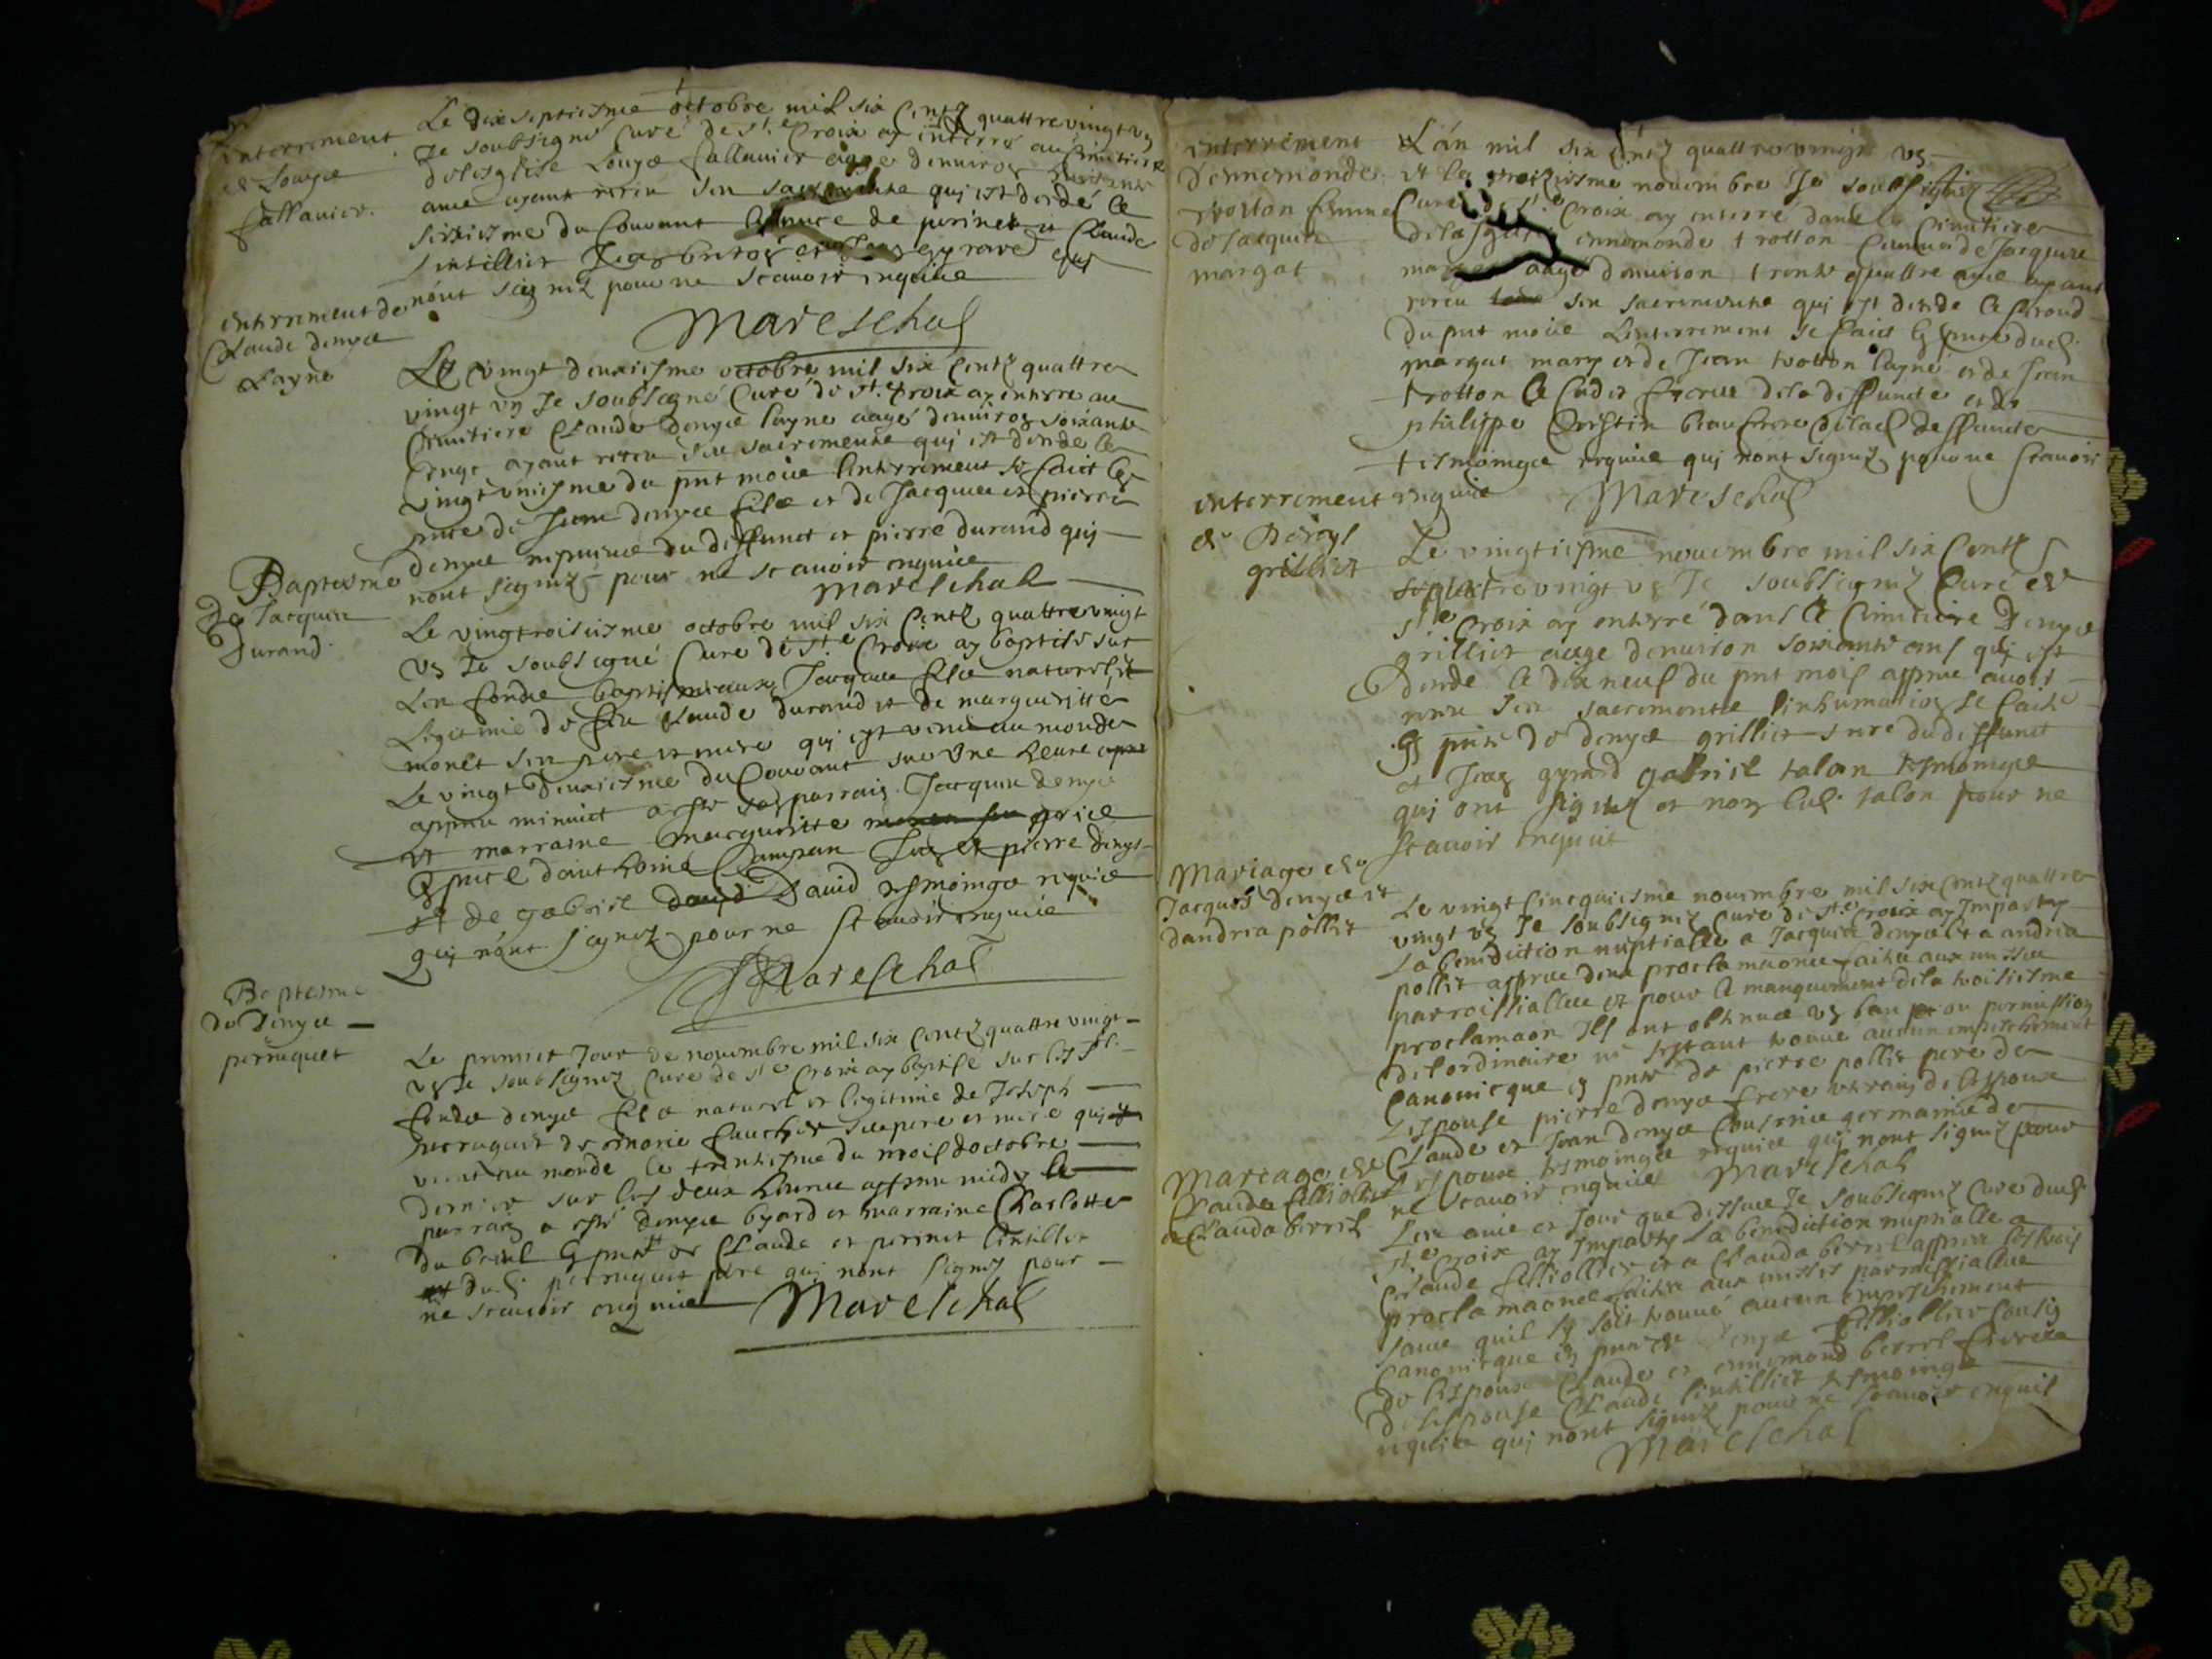 interrement
de Louyse
fallavier.
Le dix septiesme octobre mil six centz quattre vingt un
Je soubsigné Curé de Ste Croix ay interré au Cimitiere
de lesglise Louyse fallavier aagé denviron
ans ayant receu ses sacrementz qui est decedé le
seiziesme du Courant de perinet et Claude
Lintillier Jean
n'ont signez pour ne scavoir enquise
Mareschal
enterrement de
Claude denyse
Layne
Le vingt deuxiesme octobre mil six centz quattre
vingt un Je soubsigné Curé de Ste Croix ay enterre au
Cimitiere Claude denyse layne aagé denviron soixante
ayant receu ses sacrementz qui est decedé le
vingt uniesme du pnt mois lenterrement se faict en
pnce de Jeane denyse fils et de Jacques et pierre
denyse du deffunct et pierre durand qui
nont signez pour ne scavoir enquise
Mareschal
Baptesme
de Jacques
Durand
Le vingtroisiesme octobre mil six centz quattre vingt
un Je soubsigné Curé de Ste Croix ay baptisé sur
Les fondz baptismeaux Jacques filz naturel et
Legitime de feu Claude durand et de margueritte
monet ses pere et mere qui est venu au monde
Le vingt deuxiesme du Couvant sur Une heure apres
appres minuict a esté son parrain Jacques denyse
et marraine margueritte
En pnce d'anthoine Campan Jean et pierre denys
et de gabriel David tesmoings requis
qui n'ont signez pour ne scavoir enquise
Mareschal
Baptesme
de Denyse
perruquet
Le premier Jour de novembre mil six centz quattre vingt
un Je soubsignez Curé de Ste Croix ay baptisé sur les
fondz denyse filz naturel et legitime de Joseph
perruquet de marie faucher ses pere et mere qui est
venu au monde le trentiesme du mois doctobre
dernier sur les deux heures appres midy le
parrain a esté denyse byard et marraine Charlotte
du breul En pnce de Claude et perinet Lintillier
et dud perruquet pere qui nont signez pour
ne scavoir enquise Mareschal
interrement
dennemonde
trotton femme
de Jacques
margat
L'an mil six centz quattre vingt un
et le troiziesme novembre Je soubsignez
Curé de Ste Croix ay enterré dans le Cimitiere
de lesglise ennemonde trotton femme de Jacques
margat aagé denviron trente quattre ans ayant
receu ses sacrementz qui est decedé le second
du pnt mois Lenterrement se faict En pnce dud
margat mary et de Jean trotton layné et de Jean
trotton le Cadet freres de la deffuncte et de
philippe Crestin beaufrere de lad deffuncte
tesmoings requis qui nont signez pour ne scavoir
enquise Mareschal
interrement
de Denys
grillier
Le vingtiesme novembre mil six Centz
quattre vingt un Je soubsignez Curé de
Ste Croix ay enterré dans le Cimitiere Denyse
grillier aage denviron soixante ans qui est
decedé le dix neuf du pnt mois appres avoir
receu ses sacrementz linhumation se faict
En pnce de denyse grillier frere du deffunct
et Jean gyraud gabriel talon tesmoings
qui ont signez et non led talon pour ne
scavoir enquit
Mariage de
Jacques denyse et
dandrea pollit
Le vingt Cincquiesme novembre mil six centz quattre
vingt un Je soubsignez Curé de Ste Croix ay Imparty
La benediction nuptialle a Jacques denyse et a andrea
pollit appres deux proclamaones faites aux messes
parroissialles et pour le manquement de la troisiesme
proclamaon Ils ont obtenus un ban ou permission
de lordinaire ne sestant trouvé aucun empeschement
Canonicque en pnce de pierre pollit pere de
Lespouse pierre denyse frere de lespoux
Claude et Jean denyse Cousins germains de
Lespoux tesmoings requis qui nont signez pour
ne scavoir enquise Mareschal
Mareage de
Claude filliollier
a Clauda berril
Les ans et Jour que dessus Je soubsignez Curé dud
Ste Croix ay Imparty La benediction nuptialle a
Claude filliollier et a Clauda berril appres les trois
proclamaones faites aux messes parroissialles
sans quil sy soit trouvé aucun empeschement
Canonicque en pnce de denyse filliollier Cousin
de lespoux Claude et ennemond berril freres
de lespouse Claude lintillier tesmoings
requis qui nont signez pour ne scavoir enquis
Mareschal